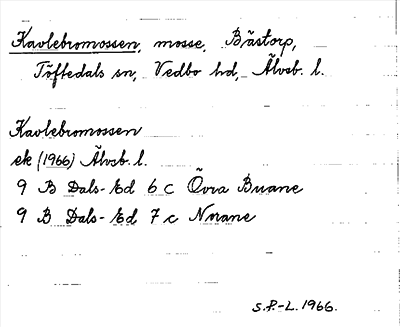 Kavlebromossen, mosse, Båstorp,
Töftedals sn, Vedbo hd, Älvsb. l.
Kavlebromossen
ek (1966) Älvsb. l.
9 B Dals-Ed 6 c Övra Buane
9 B Dals-Ed 7 c Norane
S.P.-L. 1966.